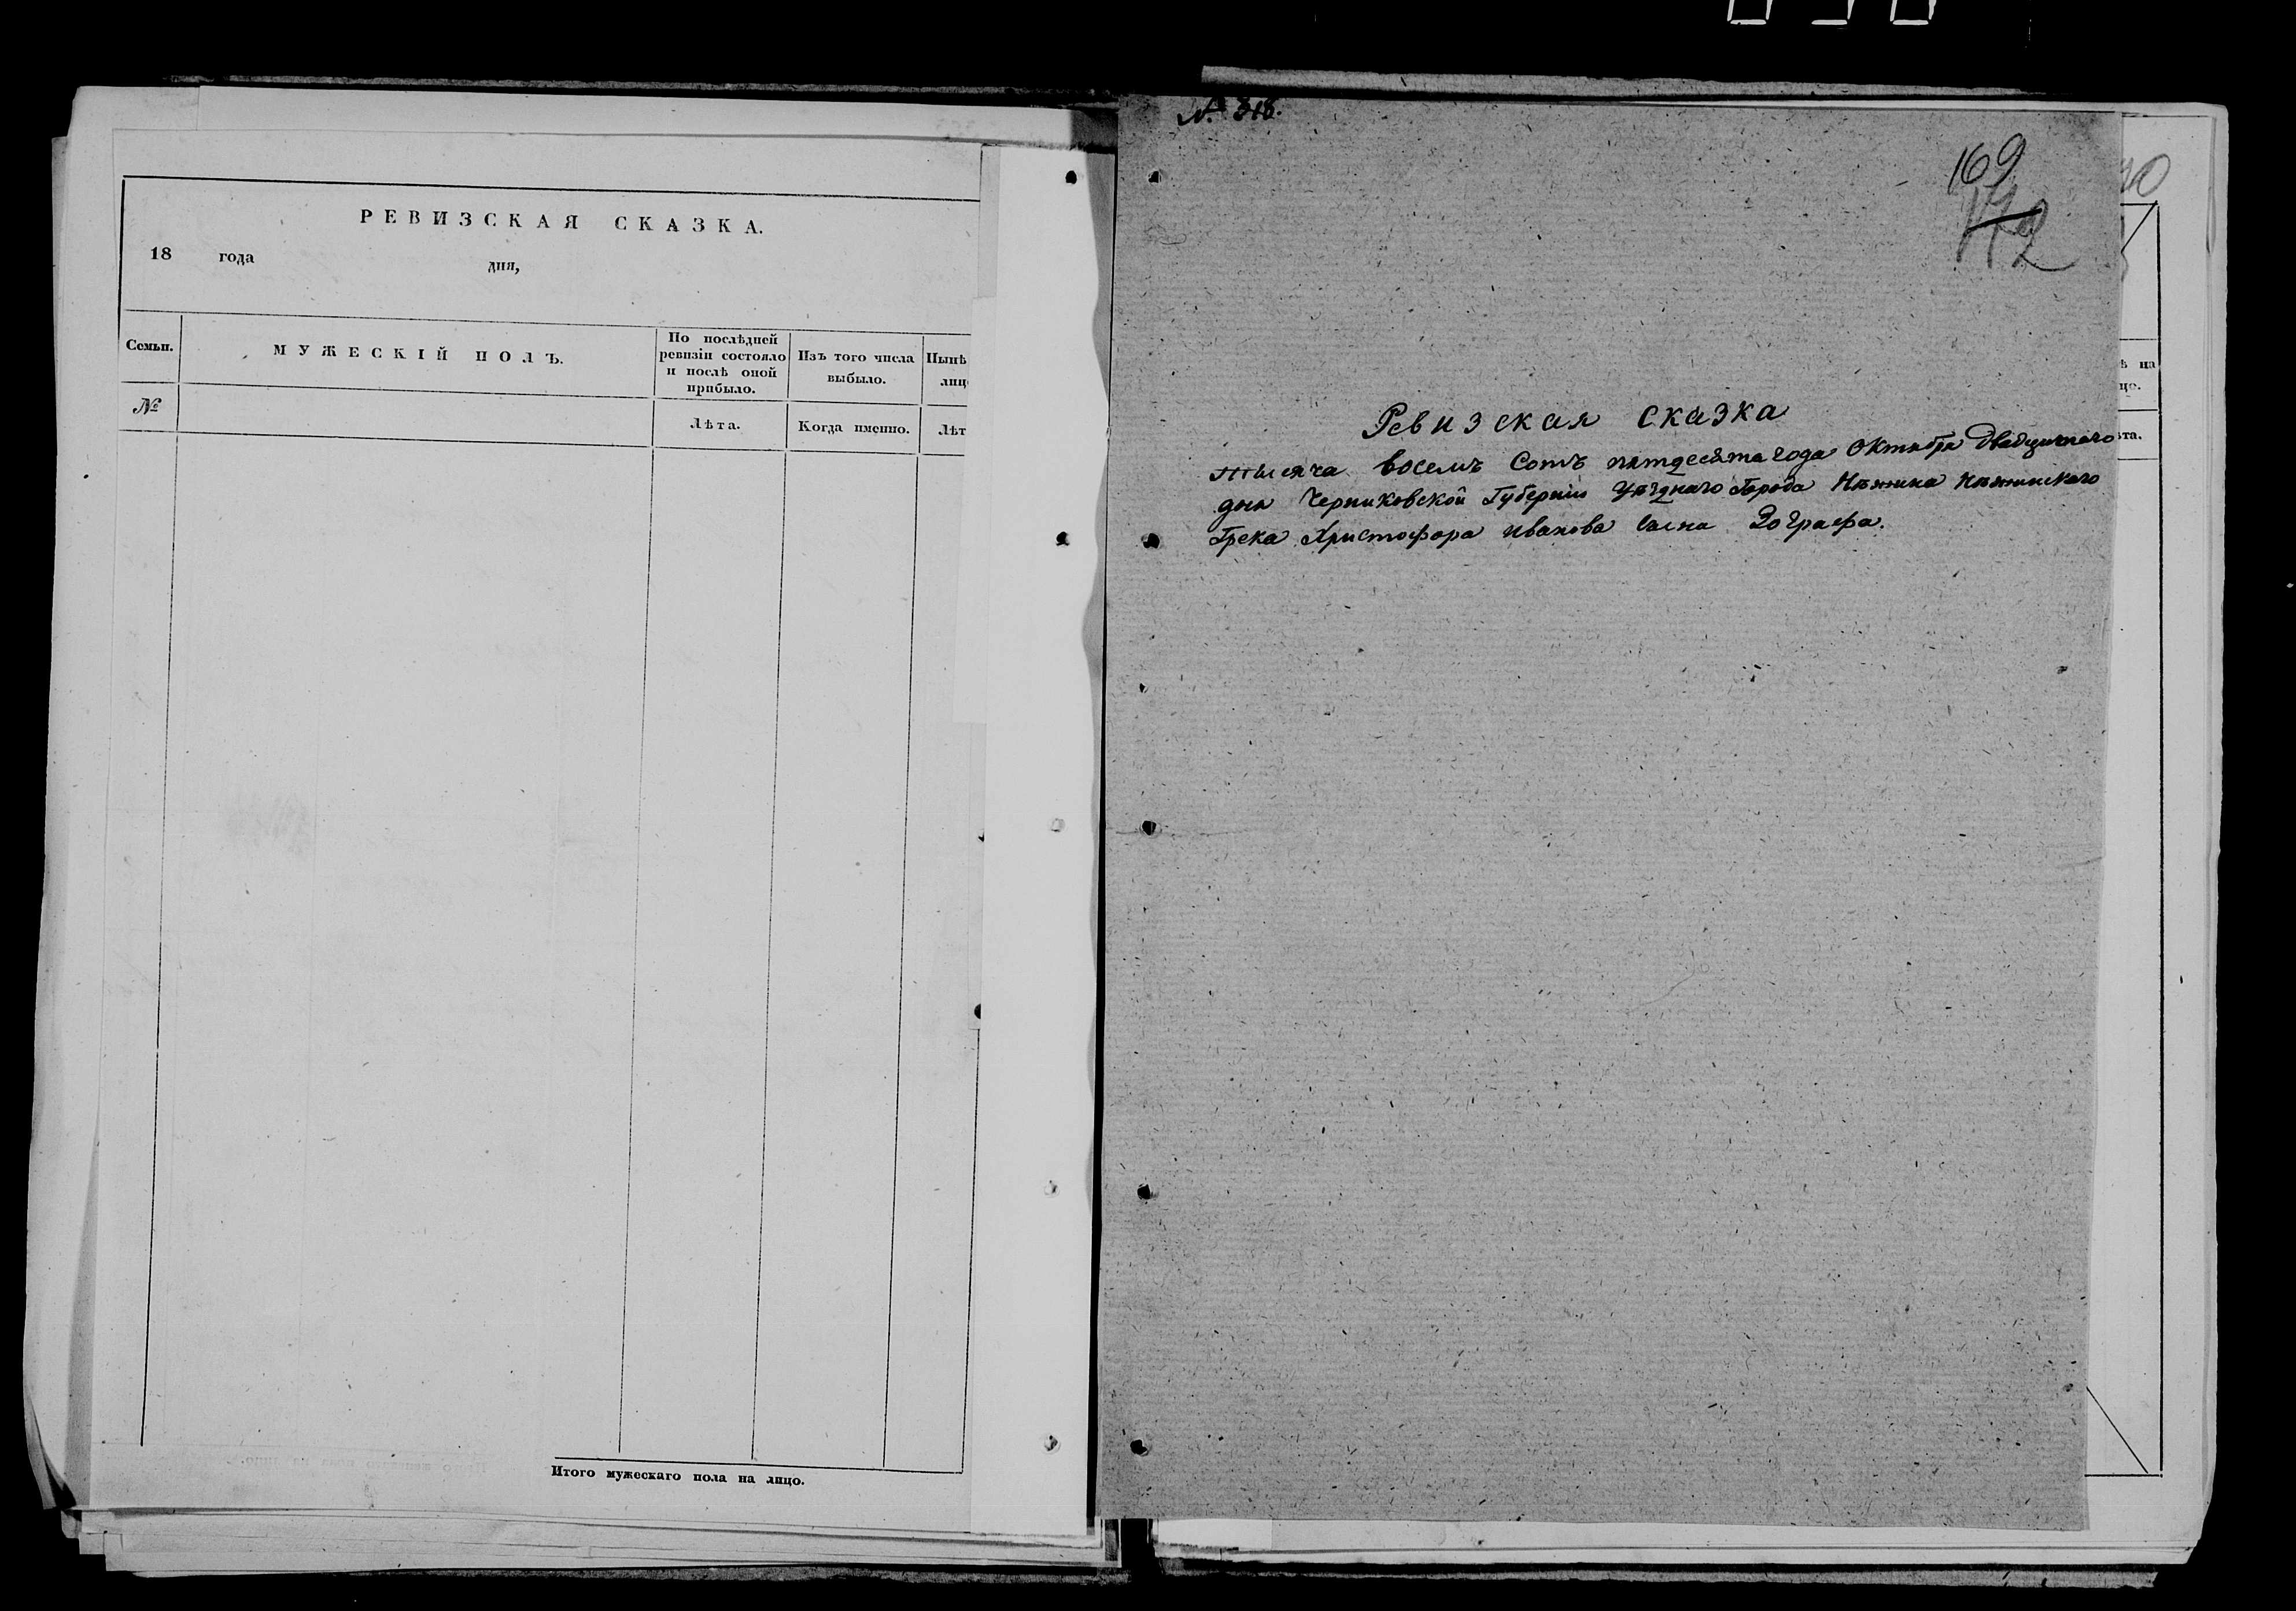 РЕВИЗСКАЯ СКАЗКА.
18 года дня,
Семьи.
МУЖЕСКІЙ ПОЛЪ.
По послѣдней
ревизіи состояло
и послѣ оной
прибыло.
Изъ того числа
выбыло.
Нынѣ
лиц
№
Лѣта.
Когда именно.
Лѣт
Итого мужескаго пола на лицо.
№ 318.
169
172
Ревизская сказка
тысяча восемь сотъ пятдесята года Октября двадцятаго
дня Черниковской Губерніи Уѣзднаго Города Нѣжина Нѣжинскаго
Грека Христофора Иванова сына Зографа.
ѣ на
цо.
ѣта.